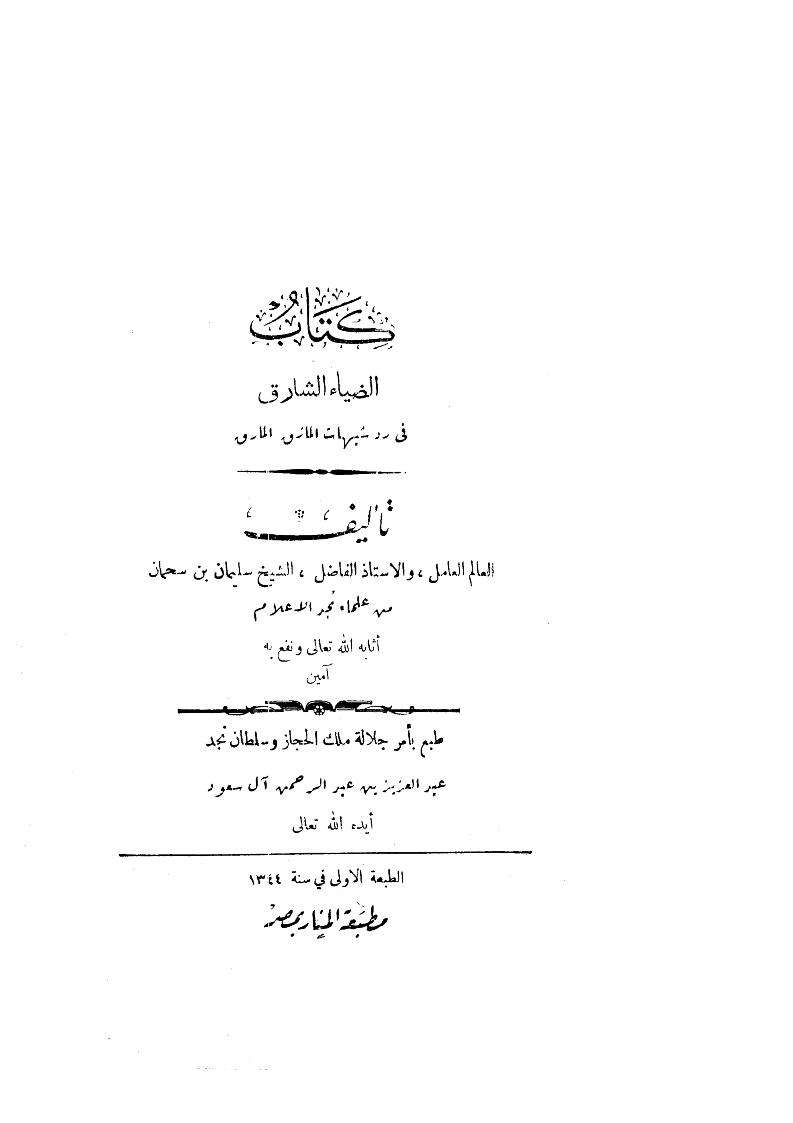 كتاب
الضياء الشارق
في رد شبهات الماذق المارق
تأليف
العالم العامل ، والاستاذ الفاضل ، الشيخ سليمان بن سحمان
من علماء نجد الاعلام
أثابه الله تعالى ونفع به
آمين
طبع بأمر جلالة ملك الحجاز وسلطان نجد
عبد العزيز بن عبد الرحمن آل سعود
أيده الله تعالى
الطبعة الاولى في سنة ١٣٤٤
مطبعة المنار بمصر